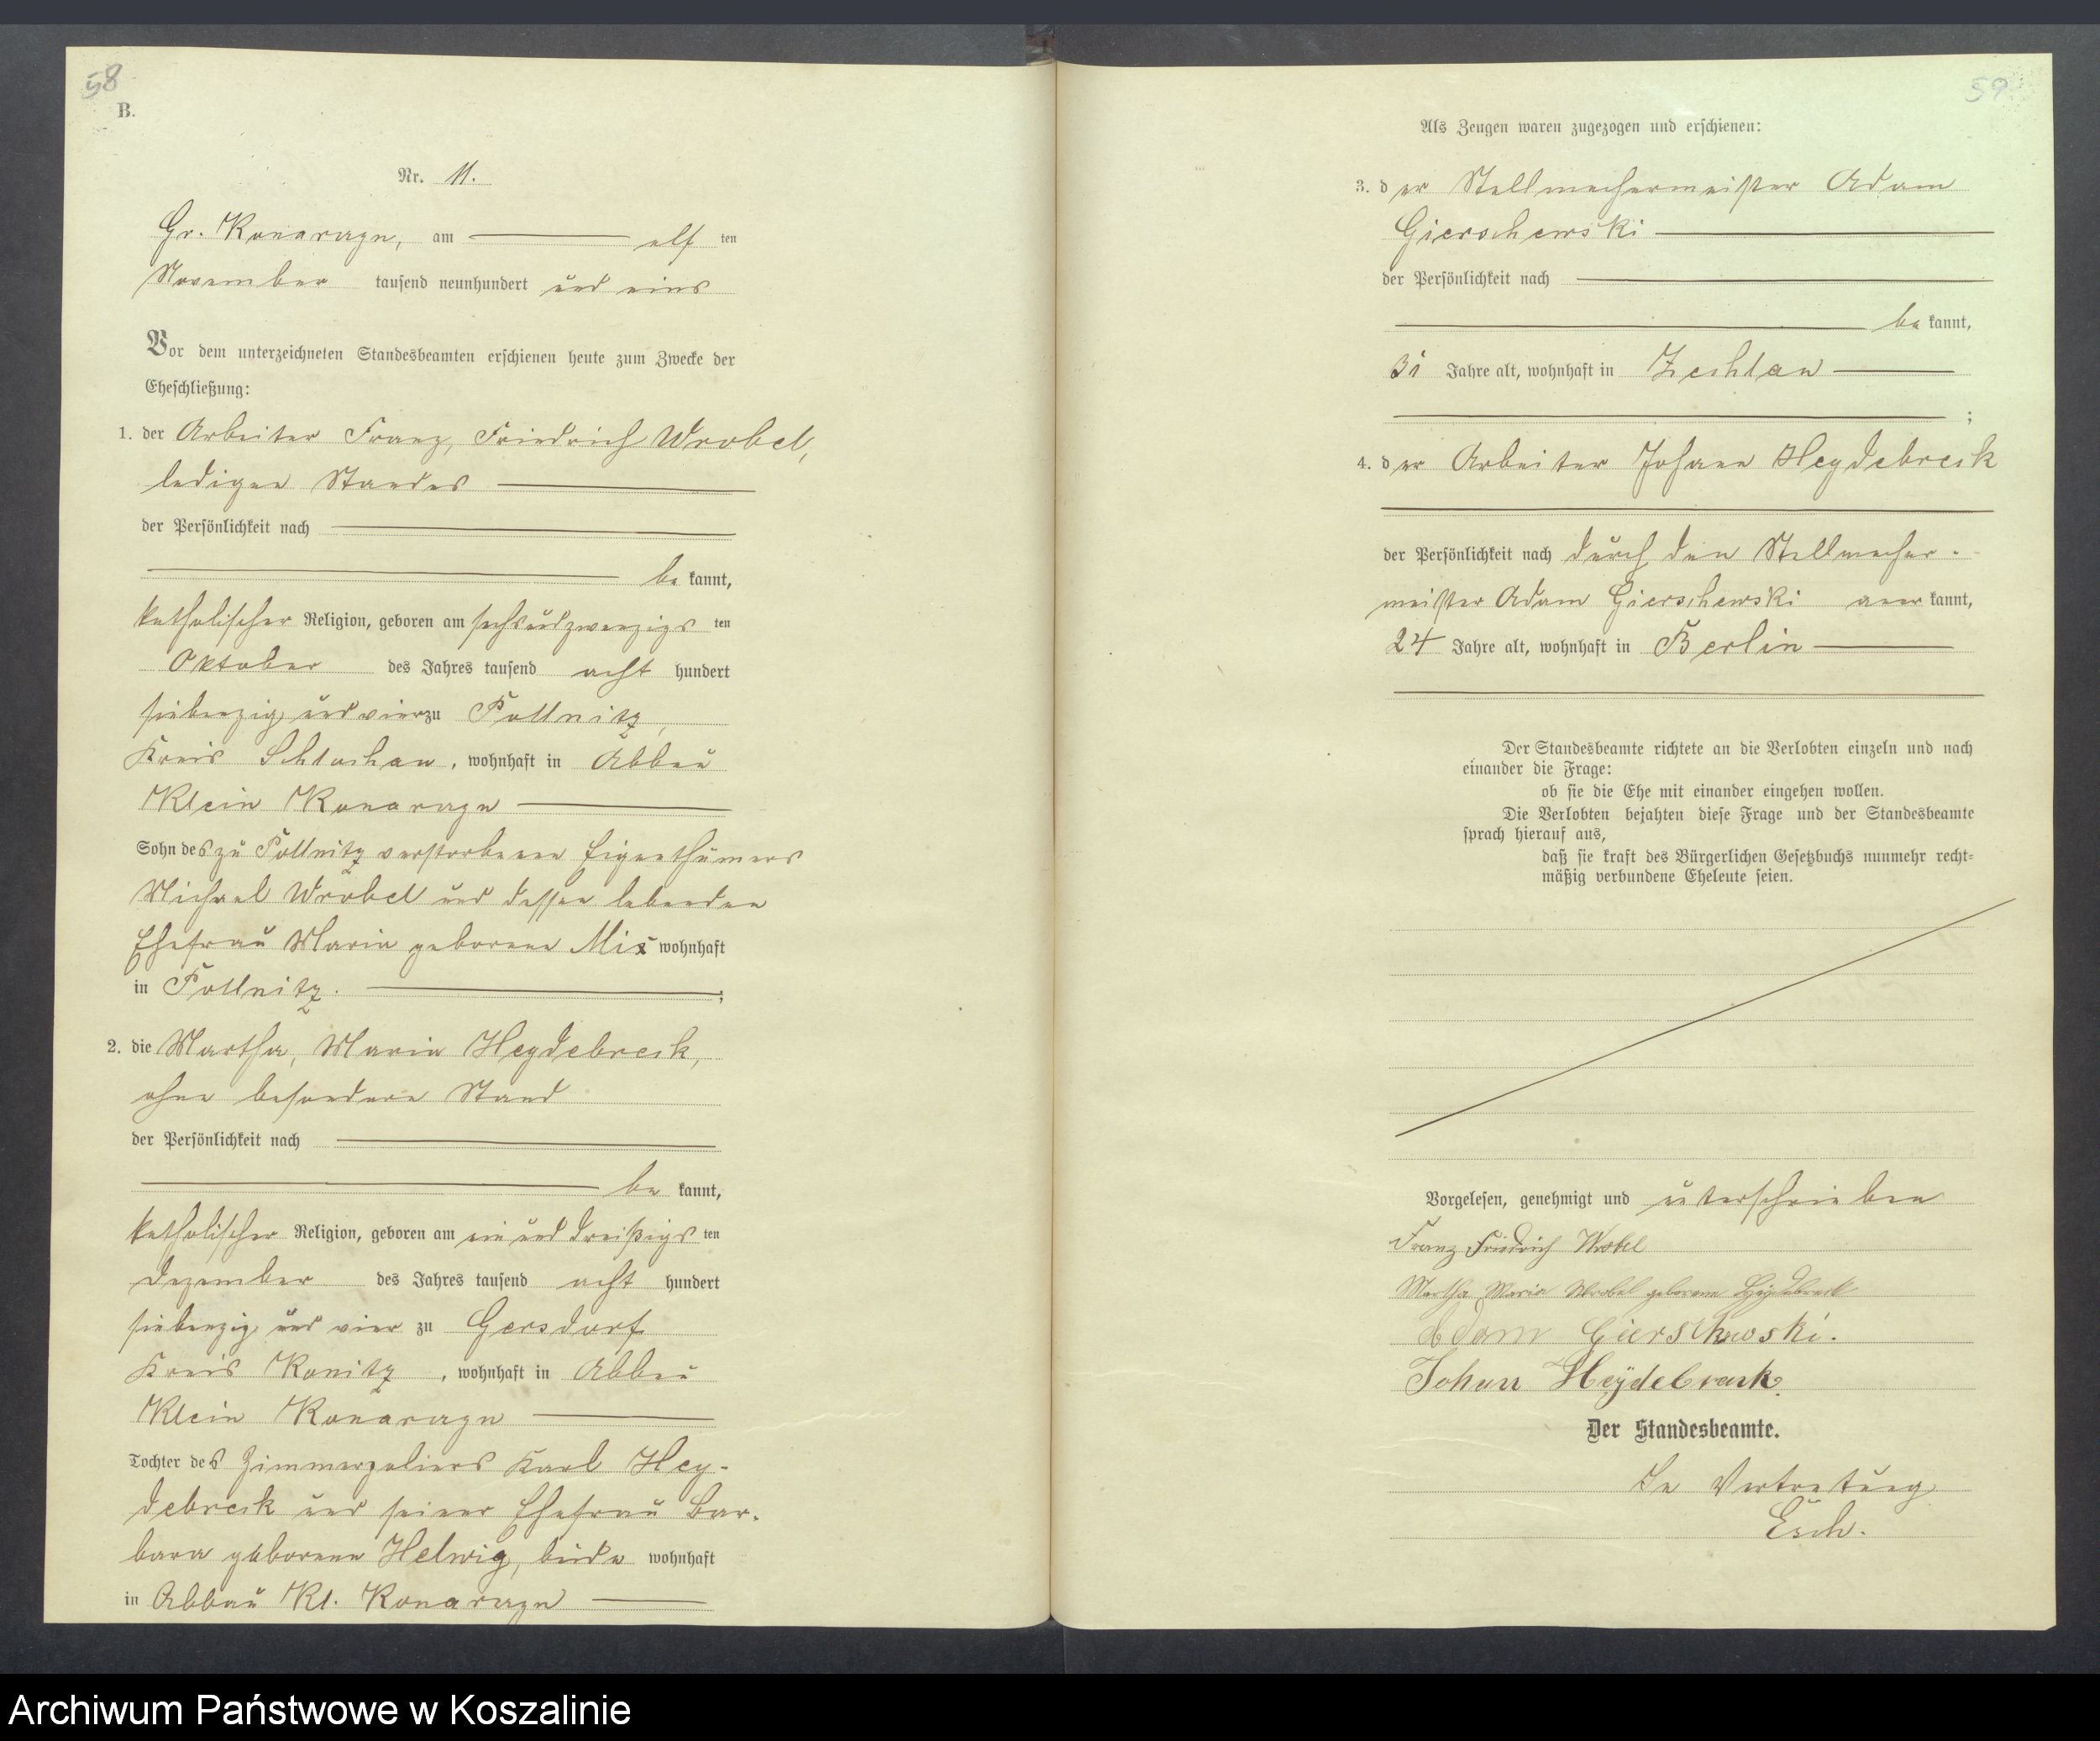 58
B.
Nr. 11.
Gr. Konarczyn, am elf ten
November tausend neunhundert und eins
Vor dem unterzeichneten Standesbeamten erschienen heute zum Zwecke der
Eheschließung:
1. der Arbeiter Franz, Friedrich Wrobel,
ledigen Standes
der Persönlichkeit nach
be kannt,
katholischer Religion, geboren am sechsundzwanzigs ten
Oktober des Jahres tausend acht hundert
siebenzig und vier zu Pollnitz,
Kreis Schlochau, wohnhaft in Abbau
Klein Konarczyn
Sohn des zu Pollnitz verstorbenen Eigenthümers
Michael Wrobel und dessen lebenden
Ehefrau Maria geborene Mix wohnhaft
in Pollnitz. ;
2. die Martha, Maria Heydebreck,
ohne besondern Stand
der Persönlichkeit nach
be kannt,
katholischer Religion, geboren am ein und dreißigs ten
Dezember des Jahres tausend acht hundert
siebenzig und vier zu Gersdorf
Kreis Konitz, wohnhaft in Abbau
Klein Konarczyn
Tochter des Zimmerpoliers Karl Hey-
debreck und seiner Ehefrau Bar-
bara geborene Helwig, beide wohnhaft
in Abbau Kl. Konarczyn
59
Als Zeugen waren zugezogen und erschienen:
3. der Stellmachermeister Adam
Gierschewski
der Persönlichkeit nach
be kannt,
Jahre alt, wohnhaft in Zechlau
;
4. der Arbeiter Johann Heydebreck
der Persönlichkeit nach durch den Stellmacher-
meister Adam Gierschewski aner kannt,
24 Jahre alt, wohnhaft in Berlin
Der Standesbeamte richtete an die Verlobten einzeln und nach
einander die Frage:
ob sie die Ehe mit einander eingehen wollen.
Die Verlobten bejahten diese Frage und der Standesbeamte
sprach hierauf aus,
daß sie kraft des Bürgerlichen Gesetzbuchs nunmehr recht-
mäßig verbundene Eheleute seien.
Vorgelesen, genehmigt und unterschrieben
Franz Friedrich Wrobel
Martha Maria Wrobel geborene Heydebreck
Adam Gierschewski.
Johann Heydebreck.
Der Standesbeamte.
In Vertretung
Esch.
Archiwum Państwowe w Koszalinie